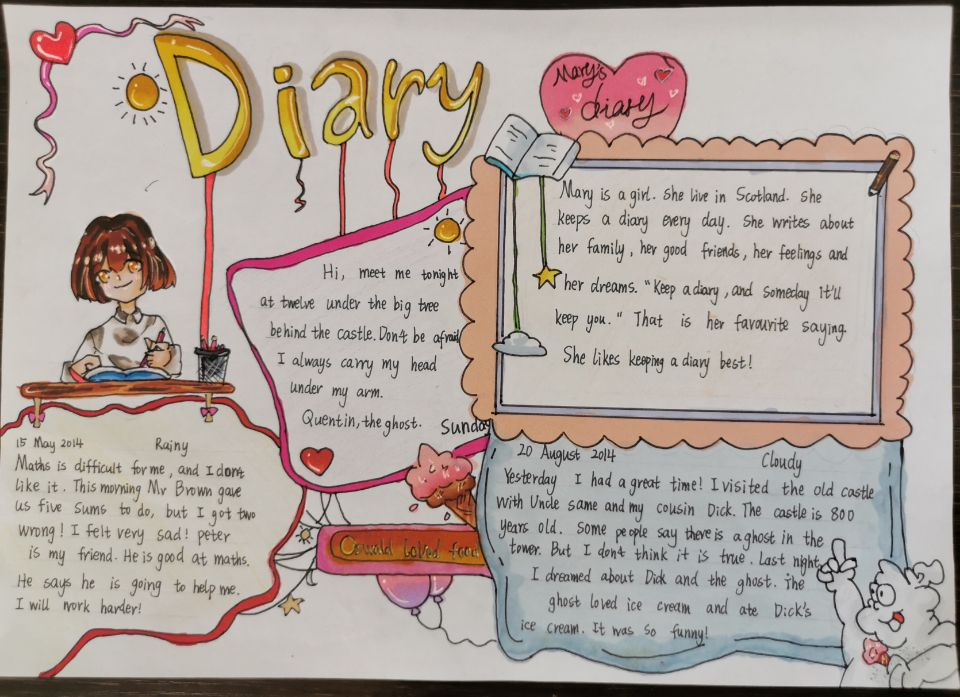 Diary
Mary's
diary
Mary is a girl. She live in Scotland. She
keeps a diary every day. She writes about
her family, her good friends, her feelings and
her dreams. "Keep a diary, and someday it'll
keep you." That is her favourite saying.
She likes keeping a diary best!
Hi, meet me tonight
at twelve under the big tree
behind the castle. Don't be afraid
I always carry my head
under my arm.
Quentin, the ghost.
Sunday
15 May 2014 Rainy
Maths is difficult for me, and I don't
like it. This morning Mr Brown gave
us five sums to do, but I got two
wrong! I felt very sad! peter
is my friend. He is good at maths.
He says he is going to help me.
I will work harder!
Oswald loved food
20 August 2014 Cloudy
Yesterday I had a great time! I visited the old castle
with Uncle same and my cousin Dick. The castle is 800
years old. Some people say there is a ghost in the
tower. But I don't think it is true. Last night,
I dreamed about Dick and the ghost. The
ghost loved ice cream and ate Dick's
ice cream. It was so funny!